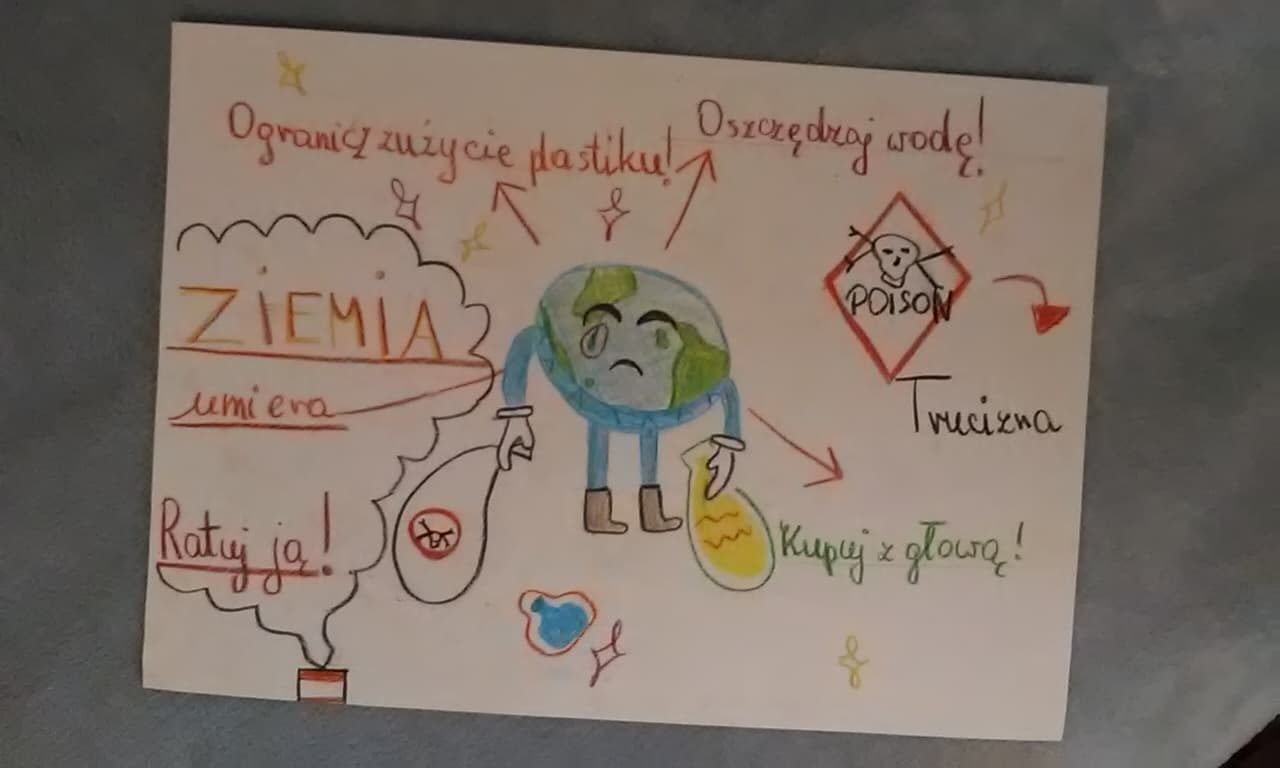 Ogranicz zużycie plastiku!
Oszczędzaj wodę!
ZiEMiA
umiera
Ratuj ją!
POISON
Trucizna
Kupuj z głową!